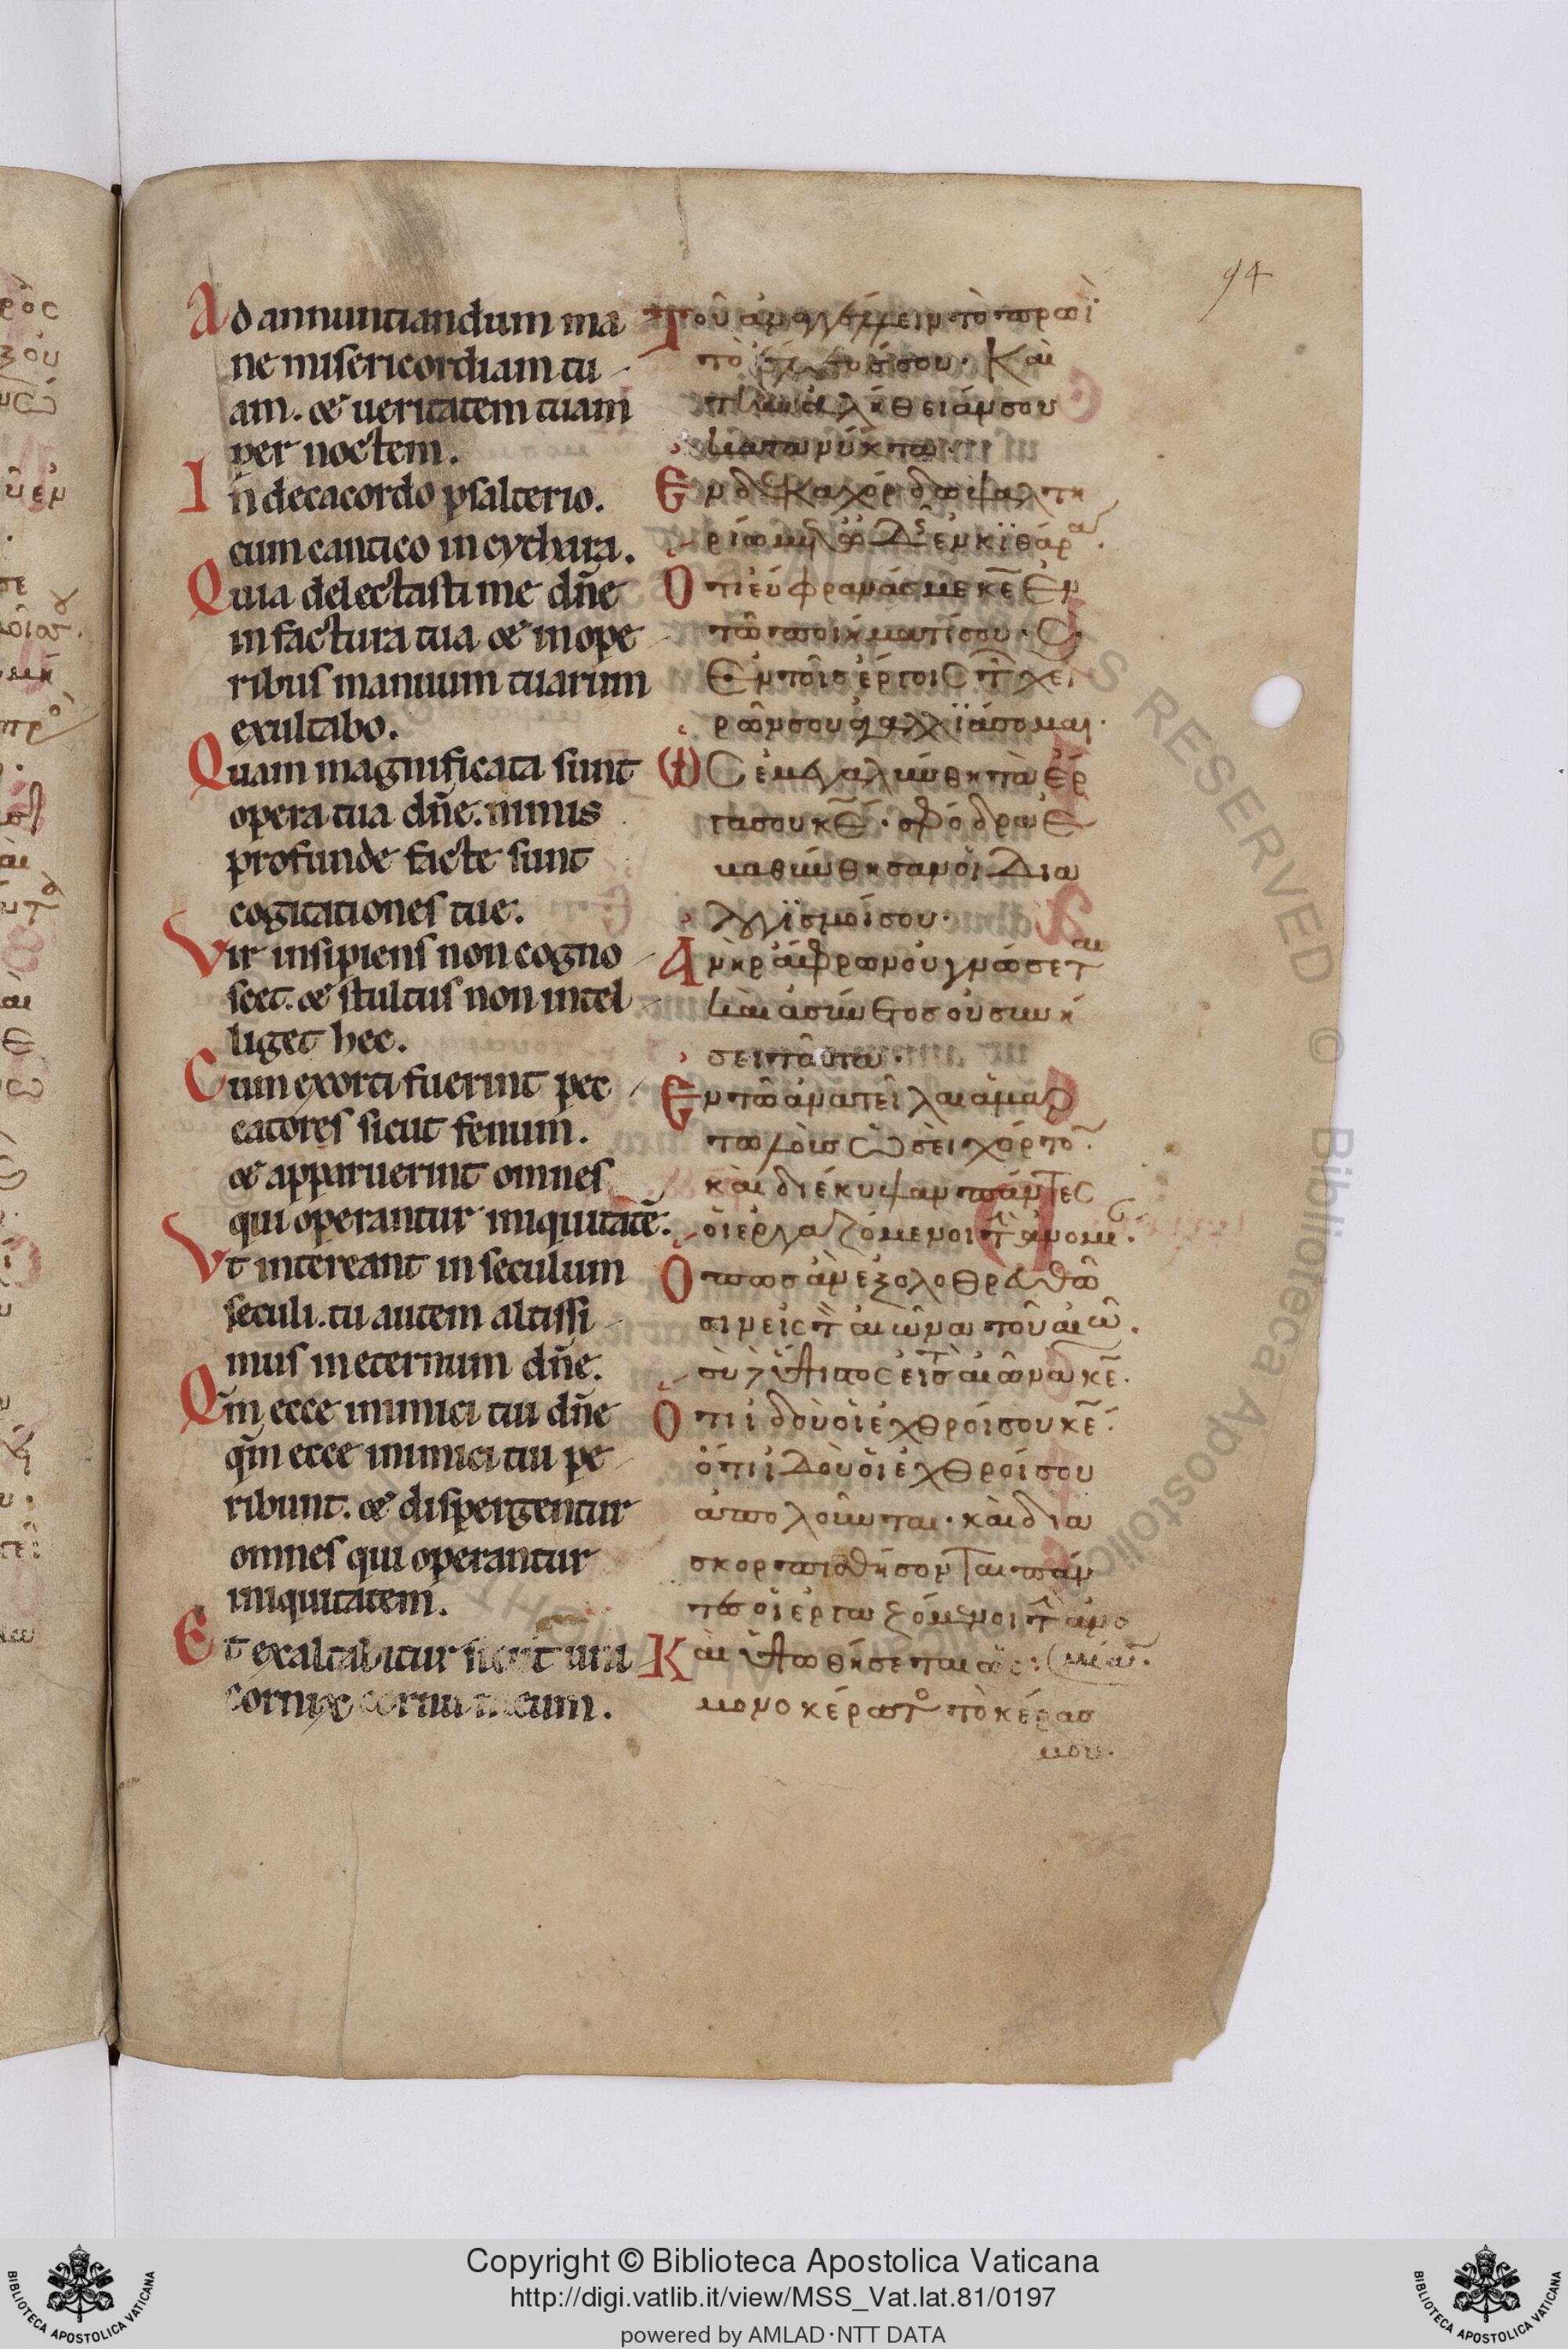 94
Ad annuntiandum ma
ne misericordiam tu
am. & ueritatem tuam
per noctem.
In decacordo psalterio.
cum cantico in cythara.
Quia delectasti me dñe
in factura tua & in ope
ribus manuum tuarum
exultabo.
Quam magnificata sunt
opera tua dñe. nimis
profunde facte sunt
cogitationes tue.
Vir insipiens non cogno
scet. & stultus non intel
liget hec.
Cum exorti fuerint pec
catores sicut fenum.
& apparuerint omnes
qui operantur iniquitatē.
Vt intereant in seculum
seculi. tu autem altissi
mus in eternum dñe.
Qm̄ ecce inimici tui dñe
qm̄ ecce inimici tui pe
ribunt. & dispergentur
omnes qui operantur
iniquitatem.
Et exaltabitur
cornu meum.
Τοῦ ἀναγγέλλειν τὸ πρωῒ
τὸ σου· Καὶ
τὴν ἀλήθειάν σου
κατα νύκτα.
Εν δεκαχόρδω ψαλτη
ρίω ἐν κϊθάρα.
Οτι εύφρανάς με κε̄ Εν
τῶ ποιήματί σου·
Εν τοῖσ έργοις τ͂ χει
ρῶν σου αγαλλϊάσομαι.
Ως ἐμεγαλύνθη τὰ ἐρ
γα σου κε̄· σφόδρα ε
βαθύνθησαν οἱ Δια
λογϊσμοί σου·
Ανὴρ άφρων ού γνώσεται
καὶ ἀσύνετοσ ού συνή
σει ταῦτα.
Εν τῶ ἀνατεῖλαι ἁμαρ
τωλοὺσ ὡσεὶ χόρτο̄
καὶ διέκυψαν πάντες
οἱ εργαζόμενοι τ̀ ἀνομι.
Οπωσ ἀν εξολοθρευθῶ
σιν εἰς τ̀ αἰῶνα τοῦ αἰῶ.
σὺ δ ὕψιστος εἰσ τ̀ αἰῶνα κε̄.
Ότι ιδοὺ οἱ ἐχθροί σου κε̄.
ὁτι ιΔοὺ οἱ ἐχθροί σου
ἀπολοῦνται· καὶ δια
σκορπισθήσονται πάν
τεσ οἱ ἐργαζόμενοι τ̀ ἀνο
μίαν.
Καὶ ὑψωθήσεται ὡς
μονοκέρωτο τὸ κέρασ
μου.
Copyright © Biblioteca Apostolica Vaticana
http://digi.vatlib.it/view/MSS_Vat.lat.81/0197
powered by AMLAD·NTT DATA
BIBLIOTECA APOSTOLICA VATICANA
BIBLIOTECA APOSTOLICA VATICANA